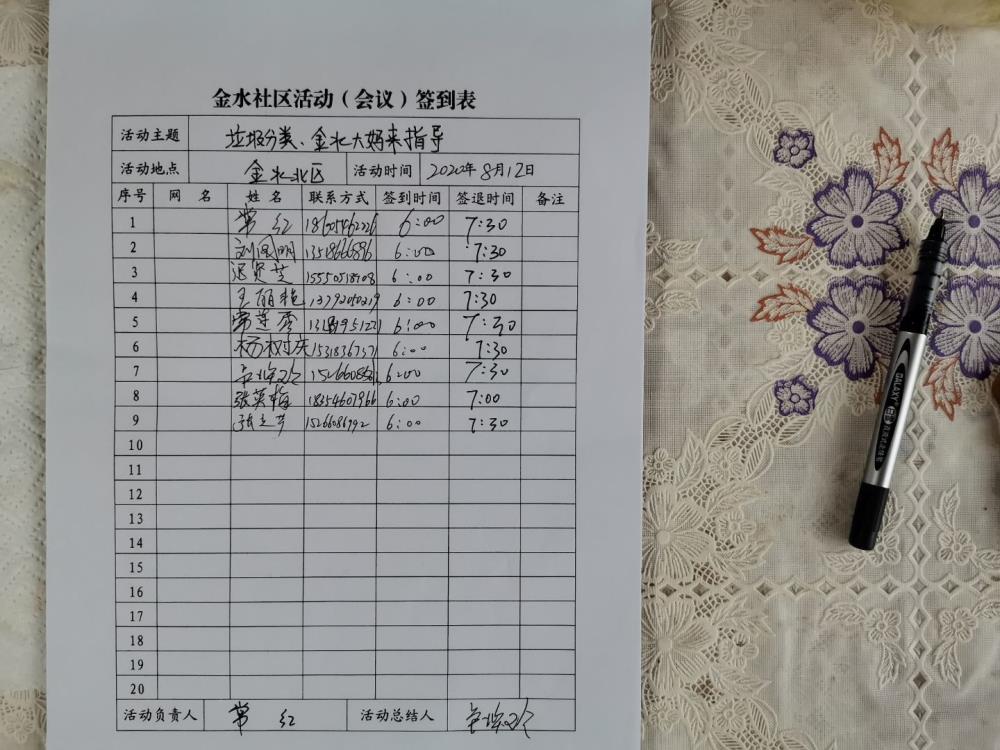 金水社区活动（会议）签到表
活动主题 垃圾分类、金水大妈来指导
活动地点 金水北区 活动时间 2020年8月12日
序号 网名 姓名 联系方式 签到时间 签退时间 备注
1 常红 6:00 7:30
2 刘凤明 6:00 7:30
3 6:00 7:30
4 王丽艳 13792050219 6:00 7:30
5 常莲香 6:00 7:30
6 杨树庆 15318367571 6:00 7:30
7 6:00 7:30
8 张英梅 18354607966 6:00 7:00
9 6:00 7:30
10
11
12
13
14
15
16
17
18
19
20
活动负责人 常红 活动总结人
GALAXY